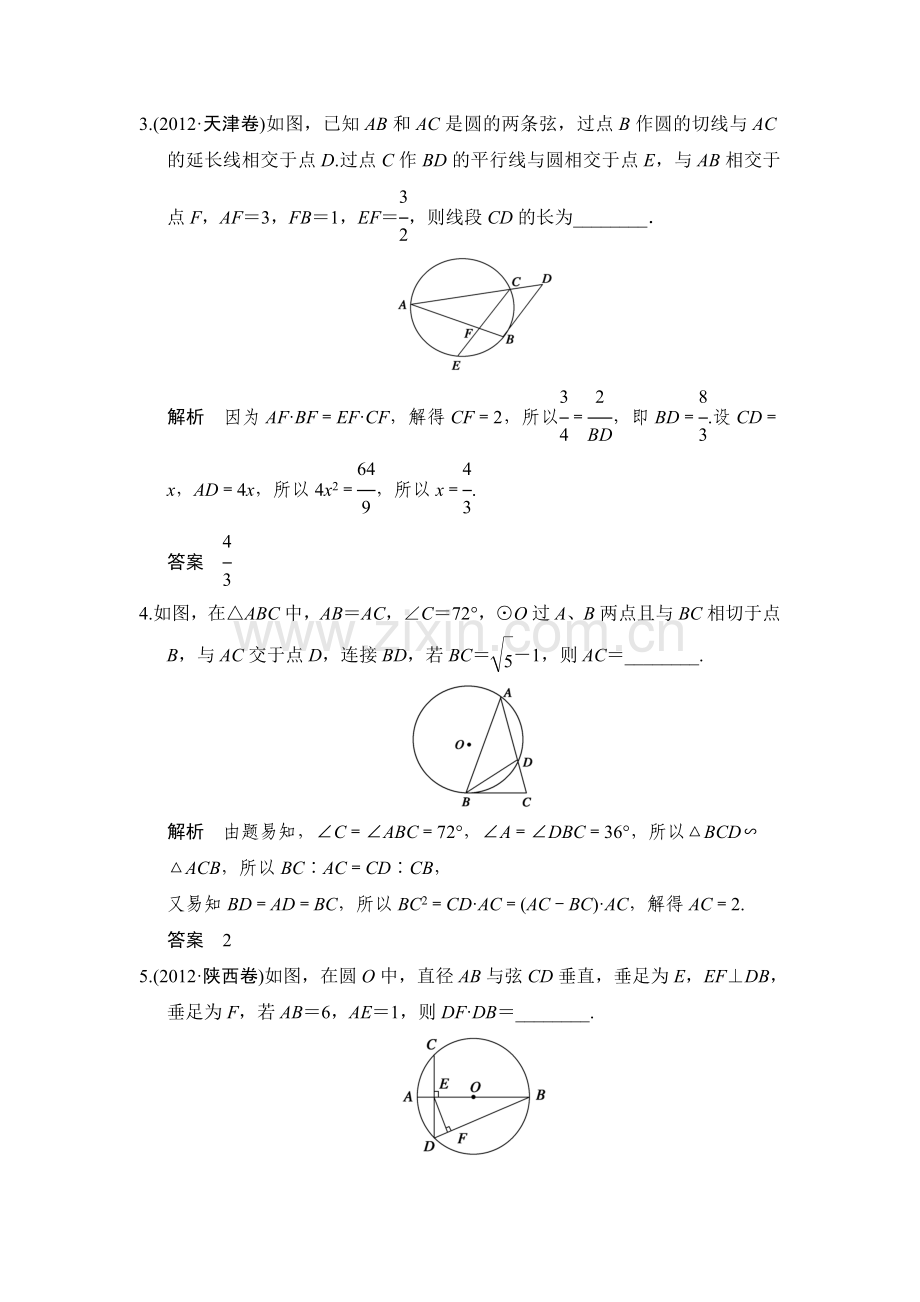 3.(2012·天津卷)如图，已知 AB 和 AC 是圆的两条弦，过点 B 作圆的切线与 AC
的延长线相交于点 D.过点 C 作 BD 的平行线与圆相交于点 E，与 AB 相交于
点 F，AF＝3，FB＝1，EF＝3/2，则线段 CD 的长为________.
A
C
D
F
B
E
解析 因为 AF·BF＝EF·CF，解得 CF＝2，所以3/4＝2/BD，即 BD＝8/3.设 CD＝
x，AD＝4x，所以 4x²＝64/9，所以 x＝4/3.
答案 4/3
4.如图，在△ABC 中，AB＝AC，∠C＝72°，⊙O 过 A、B 两点且与 BC 相切于点
B，与 AC 交于点 D，连接 BD，若 BC＝√5－1，则 AC＝________.
www.zixin.com.cn
A
O
D
B
C
解析 由题易知，∠C＝∠ABC＝72°，∠A＝∠DBC＝36°，所以△BCD∽
△ACB，所以 BC∶AC＝CD∶CB，
又易知 BD＝AD＝BC，所以 BC²＝CD·AC＝(AC－BC)·AC，解得 AC＝2.
答案 2
5.(2012·陕西卷)如图，在圆 O 中，直径 AB 与弦 CD 垂直，垂足为 E，EF⊥DB，
垂足为 F，若 AB＝6，AE＝1，则 DF·DB＝________.
C
A
E
O
B
D
F